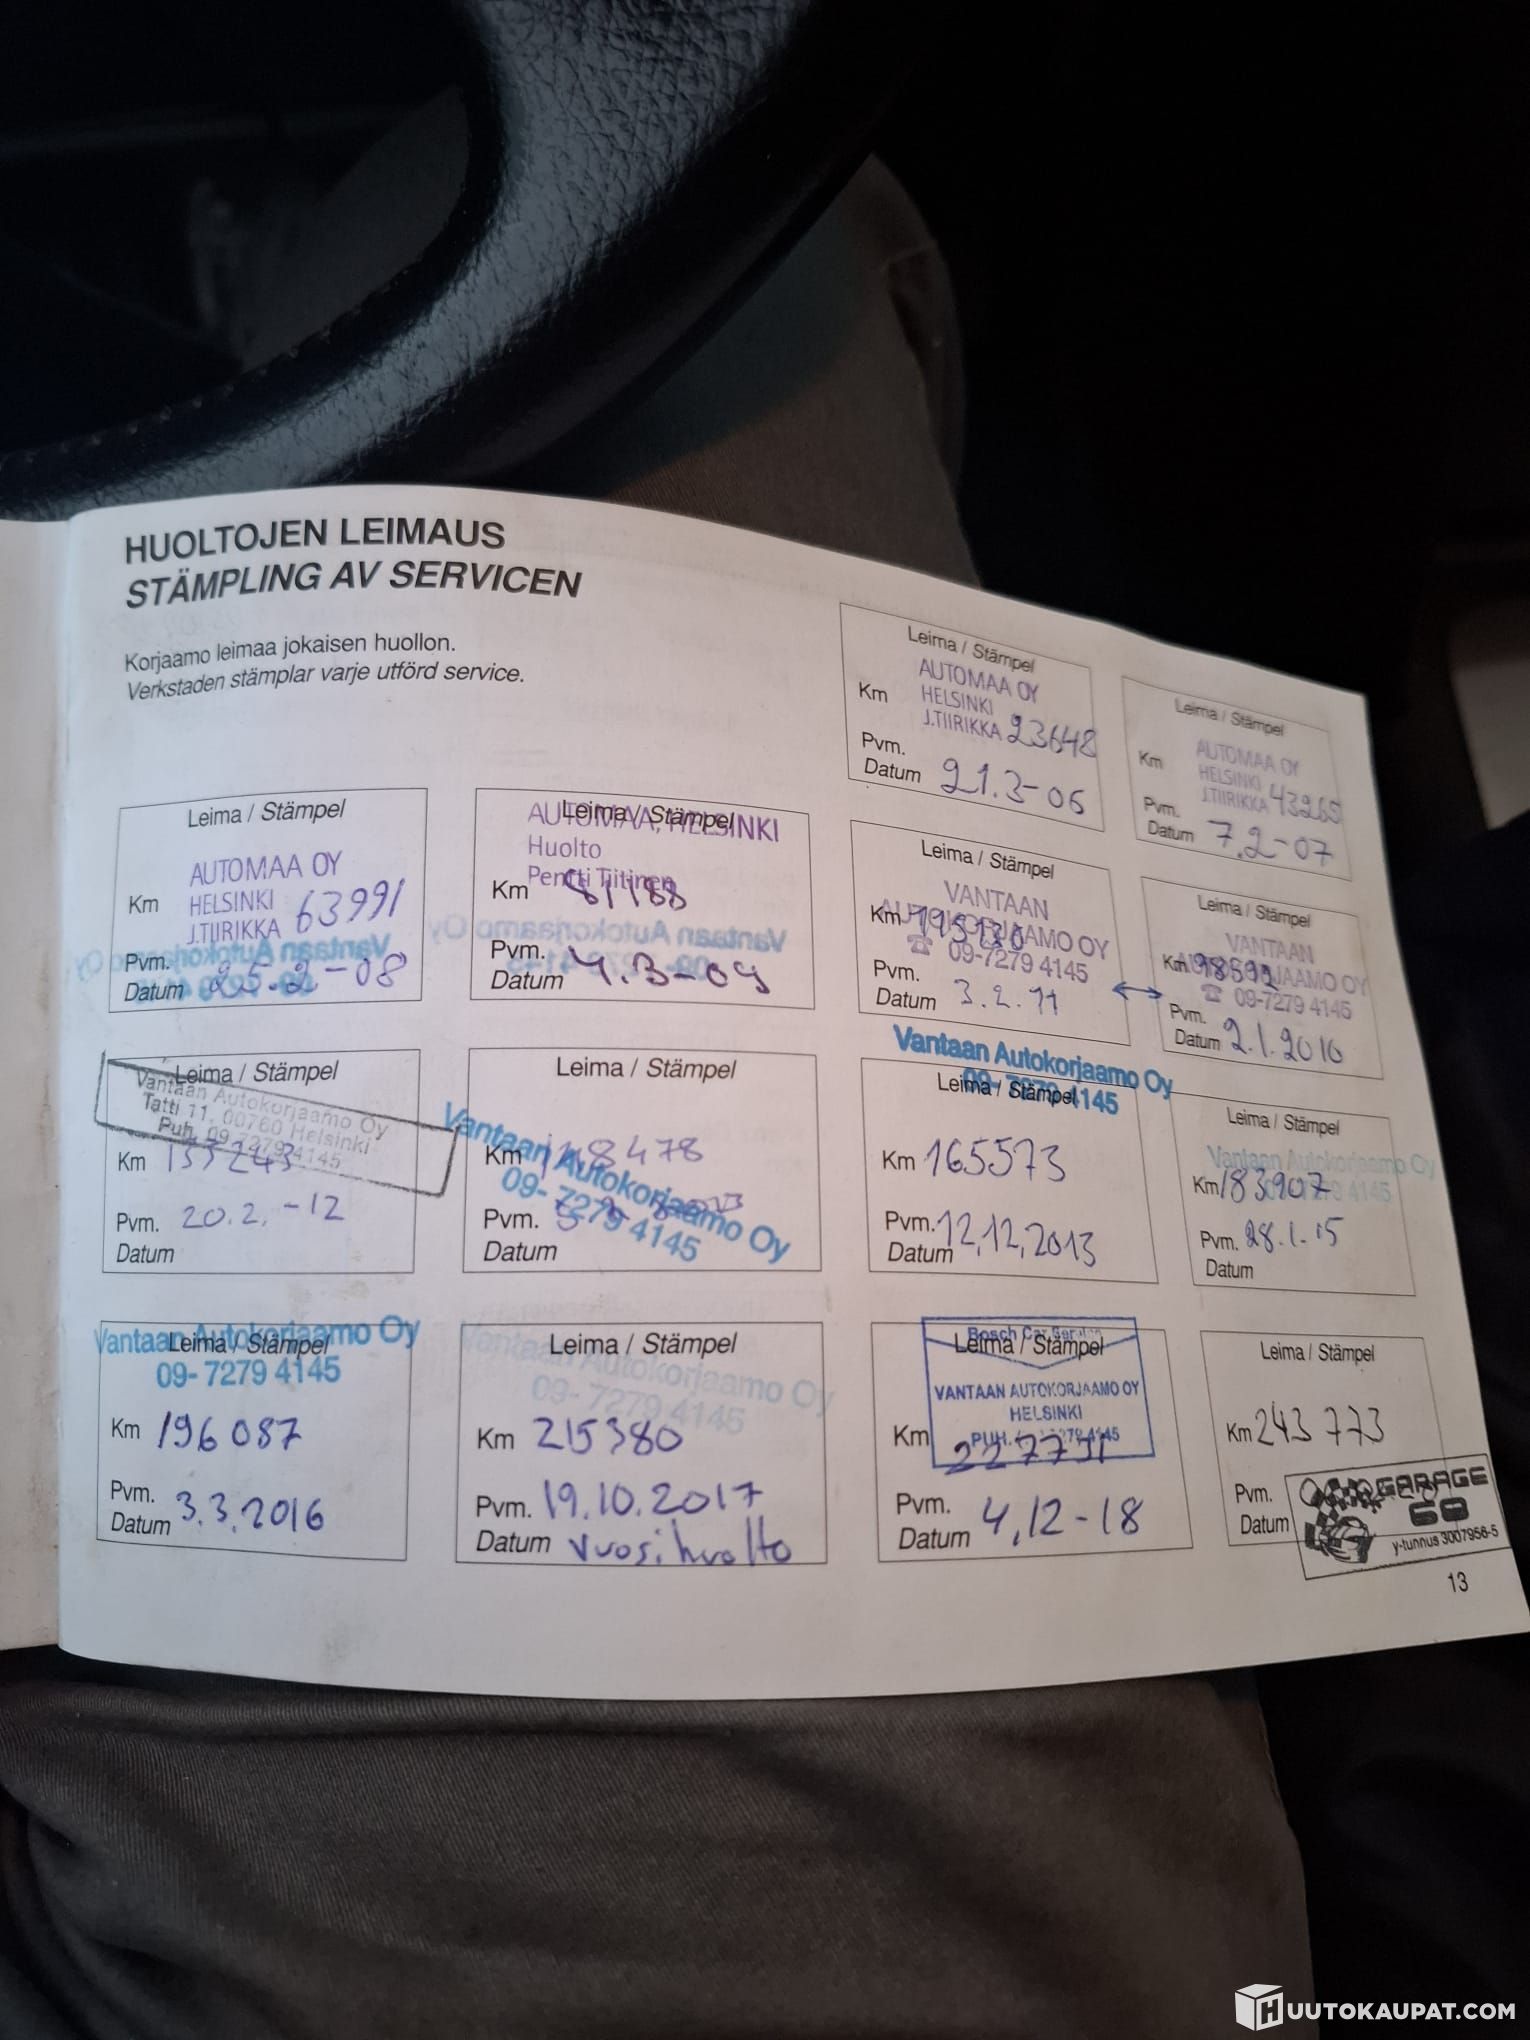 HUOLTOJEN LEIMAUS
STÄMPLING AV SERVICEN
Korjaamo leimaa jokaisen huollon.
Verkstaden stämplar varje utförd service.
Leima / Stämpel
AUTOMAA OY
HELSINKI
J.TIIRIKKA
Km 23648
Pvm.
Datum 21.3-06
Leima / Stämpel
AUTOMAA OY
HELSINKI
J.TIIRIKKA
Km 43265
Pvm.
Datum 7.2-07
Leima / Stämpel
AUTOMAA OY
HELSINKI
J.TIIRIKKA
Km 63991
Pvm.
Datum 25.2-08
Leima / Stämpel
AUTOMAA, HELSINKI
Huolto
Pentti Tiitinen
Km 81188
Pvm.
Datum 4.3-09
Leima / Stämpel
VANTAAN
AUTOKORJAAMO OY
☎ 09-7279 4145
Km
Pvm.
Datum 3.2.11
↔
Leima / Stämpel
VANTAAN
AUTOKORJAAMO OY
☎ 09-7279 4145
Km 98592
Pvm.
Datum 2.1.2010
Leima / Stämpel
Vantaan Autokorjaamo Oy
Tatti 11, 00760 Helsinki
Puh. 09 7279 4145
Km 133243
Pvm. 20.2.-12
Datum
Leima / Stämpel
Vantaan Autokorjaamo Oy
09- 7279 4145
Km 148478
Pvm.
Datum
Vantaan Autokorjaamo Oy
09- 7279 4145
Leima / Stämpel
Km 165573
Pvm. 12.12.2013
Datum
Leima / Stämpel
Vantaan Autokorjaamo Oy
Km 183907
Pvm. 28.1.15
Datum
Vantaan Autokorjaamo Oy
Leima / Stämpel
09- 7279 4145
Km 196087
Pvm.
Datum 3.3.2016
Leima / Stämpel
Vantaan Autokorjaamo Oy
09- 7279 4145
Km 215380
Pvm. 19.10.2017
Datum vuosihuolto
Bosch Car Service
Leima / Stämpel
VANTAAN AUTOKORJAAMO OY
HELSINKI
PUH. 09 7279 4145
Km 227731
Pvm.
Datum 4.12-18
Leima / Stämpel
Km 243 773
Pvm.
Datum
GARAGE
69
y-tunnus 3007956-5
13
HUUTOKAUPAT.COM